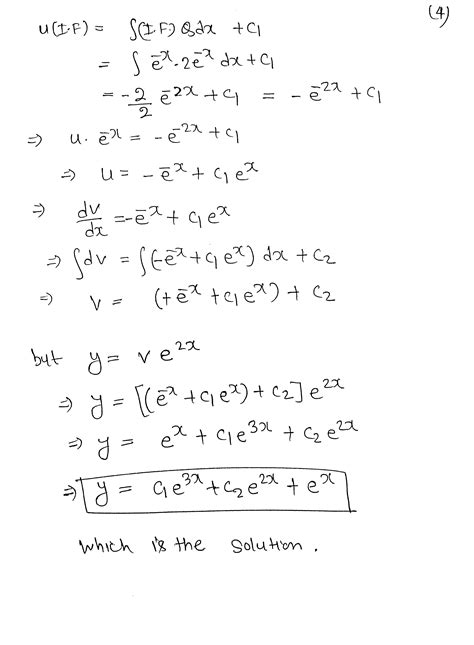 (4)
u(I.F) = ∫(I.F) Q dx + c₁
= ∫ e⁻ˣ . 2e⁻ˣ dx + c₁
= -2/2 e⁻²ˣ + c₁ = - e⁻²ˣ + c₁
⇒ u . e⁻ˣ = - e⁻²ˣ + c₁
⇒ u = - e⁻ˣ + c₁ eˣ
⇒ dv/dx = - e⁻ˣ + c₁ eˣ
⇒ ∫dv = ∫(-e⁻ˣ + c₁ eˣ) dx + c₂
⇒ v = (+e⁻ˣ + c₁ eˣ) + c₂
but y = v e²ˣ
⇒ y = [(e⁻ˣ + c₁ eˣ) + c₂] e²ˣ
⇒ y = eˣ + c₁ e³ˣ + c₂ e²ˣ
⇒ y = c₁ e³ˣ + c₂ e²ˣ + eˣ
which is the solution .